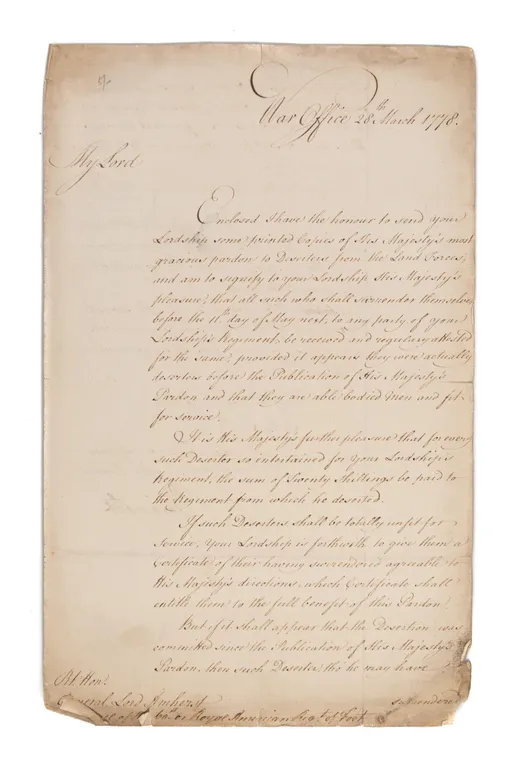 War Office 28th March 1778.
My Lord
Enclosed I have the honour to send your
Lordship some printed Copies of His Majesty's most
gracious pardon to Deserters from the Land Forces;
and am to signify to your Lordship His Majesty's
pleasure, that all such who shall surrender themselves
before the 11th day of May next, to any party of your
Lordship's Regiment, be received and regularly attested
for the same, provided it appears they were actually
deserters before the Publication of His Majesty's
Pardon and that they are able bodied Men and fit
for service.
It is His Majesty's further pleasure that for every
such Deserter so intertained for your Lordship's
Regiment, the sum of Twenty Shillings be paid to
the Regiment from which he deserted.
If such Deserters shall be totally unfit for
Service, your Lordship is forthwith to give them a
Certificate of their having surrendered agreable to
His Majesty's directions, which Certificate shall
entitle them to the full benefit of this Pardon.
But if it shall appear that the Desertion was
committed since the Publication of His Majesty's
Pardon, then such Deserter, tho' he may have
surrendered
Rt. Honl.
General Lord Amherst
of the 60th or Royal American Regt. of Foot